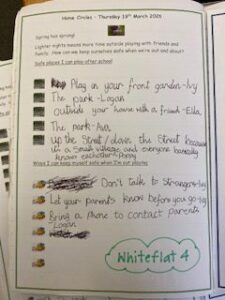 Home Circles - Thursday 13th March 2025
Spring has sprung!
Lighter nights means more time outside playing with friends and
family. How can we keep ourselves safe when we're out and about?
Safe places I can play after school
Play on your front garden-Ivy
The park-Logan
Outside your house with a friend-Ella
The park-Ava
Up the Street/down the Street because
it a Small village and everyone basically
knows eachother-Poppy
Ways I can keep myself safe when I'm out playing
Don't talk to Strangers-Ivy
Let your parents know before you go-Ivy
Bring a phone to contact parents
-Logan
Whiteflat 4